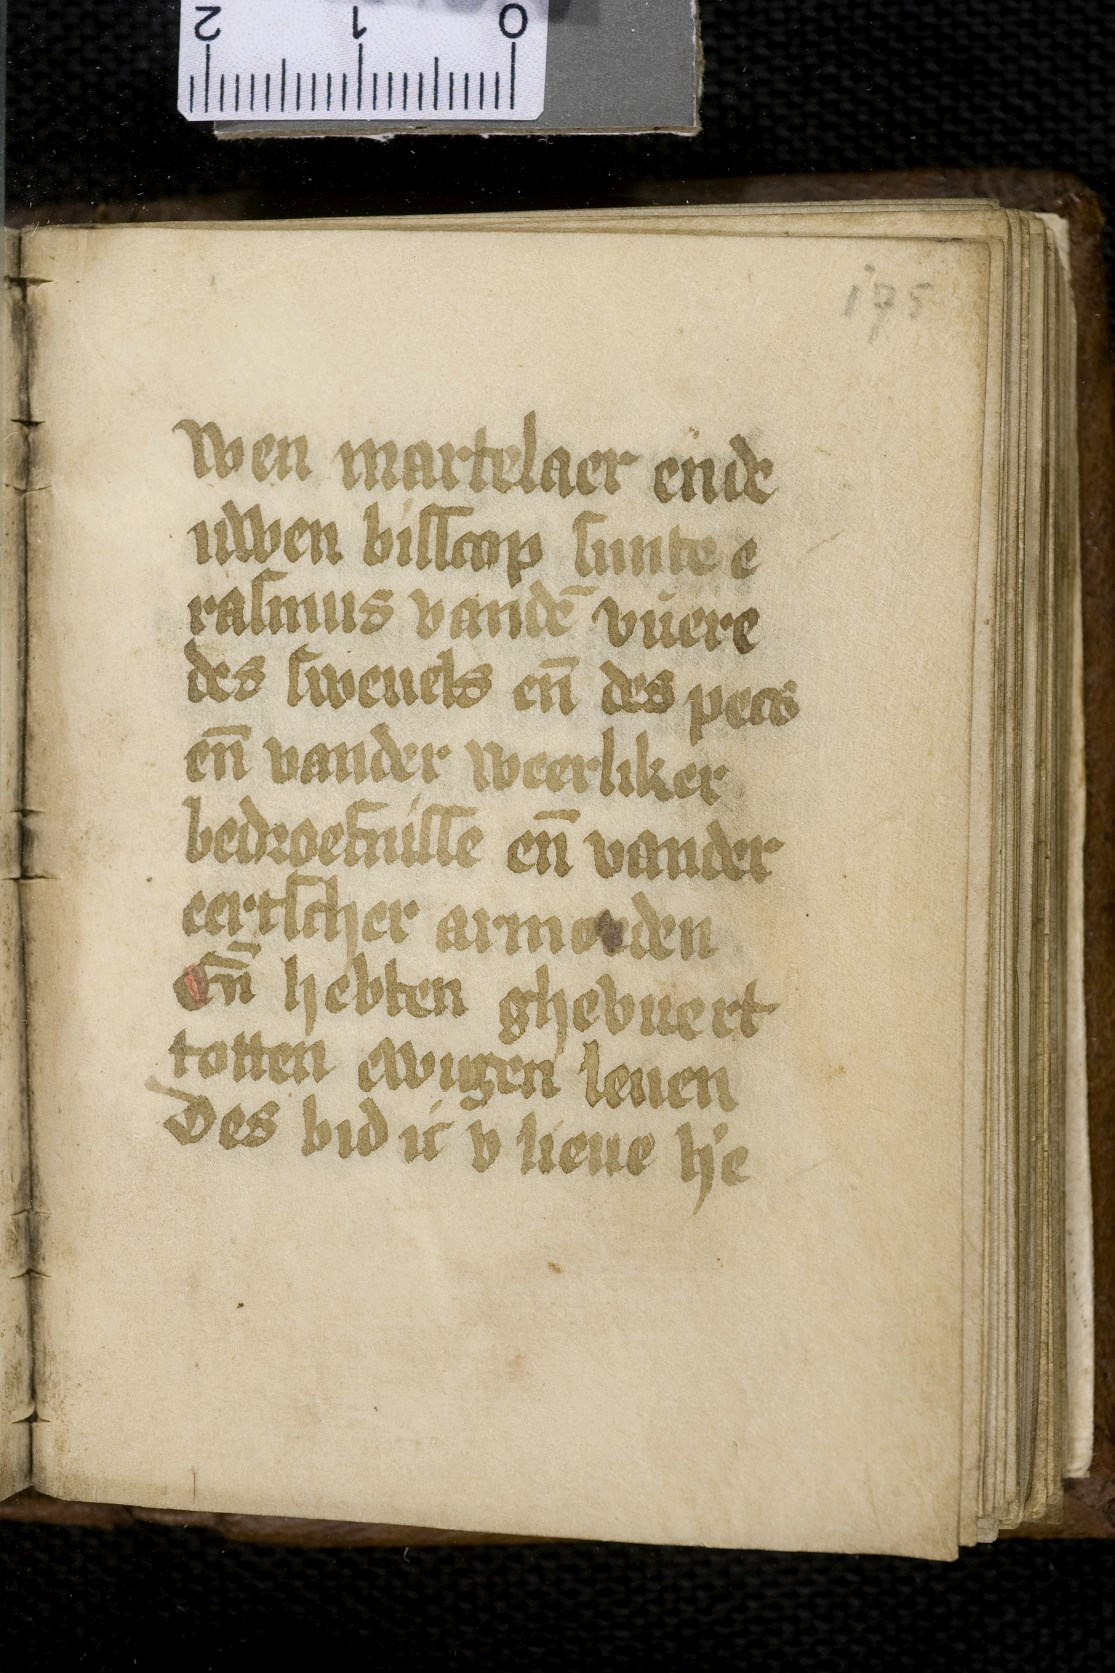 2 1 0
175
wen martelaer ende
uwen bisscop sunte e
rasmus vandē vuere
des sweuels en̄ des pecs
en̄ vander weerliker
bedroefnisse en̄ vander
eertscher armoeden
En̄ hebten ghevuert
totten ewigen leuen
Des bid ic v lieue h'e